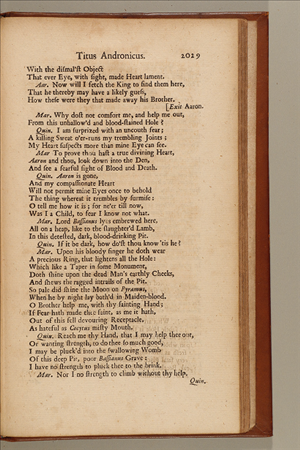 Titus Andronicus. 2029
With the dismal'st Object
That ever Eye, with sight, made Heart lament.
Aar. Now will I fetch the King to find them here,
That he thereby may have a likely guess,
How these were they that made away his Brother.
[Exit Aaron.
Mar. Why dost not comfort me, and help me out,
From this unhallow'd and blood-stained Hole?
Quin. I am surprized with an uncouth fear;
A killing Sweat o'er-runs my trembling Joints;
My Heart suspects more than mine Eye can see.
Mar To prove thou hast a true divining Heart,
Aaron and thou, look down into the Den,
And see a fearful sight of Blood and Death.
Quin. Aaron is gone,
And my compassionate Heart
Will not permit mine Eyes once to behold
The thing whereat it trembles by surmise:
O tell me how it is; for ne'er till now,
Was I a Child, to fear I know not what.
Mar. Lord Bassianus lyes embrewed here,
All on a heap, like to the slaughter'd Lamb,
In this detested, dark, blood-drinking Pit.
Quin. If it be dark, how do'st thou know 'tis he?
Mar. Upon his bloody finger he doth wear
A precious Ring, that lightens all the Hole:
Which like a Taper in some Monument,
Doth shine upon the dead Man's earthly Cheeks,
And shews the ragged intrails of the Pit.
So pale did shine the Moon on Pyramus,
When he by night lay bath'd in Maiden-blood.
O Brother help me, with thy fainting Hand;
If Fear hath made thee faint, as me it hath,
Out of this fell devouring Receptacle,
As hateful as Cocytus misty Mouth.
Quin. Reach me thy Hand, that I may help thee out,
Or wanting strength, to do thee so much good,
I may be pluck'd into the swallowing Womb
Of this deep Pit, poor Bassianus Grave:
I have no strength to pluck thee to the brink.
Mar. Nor I no strength to climb without thy help.
Quin.